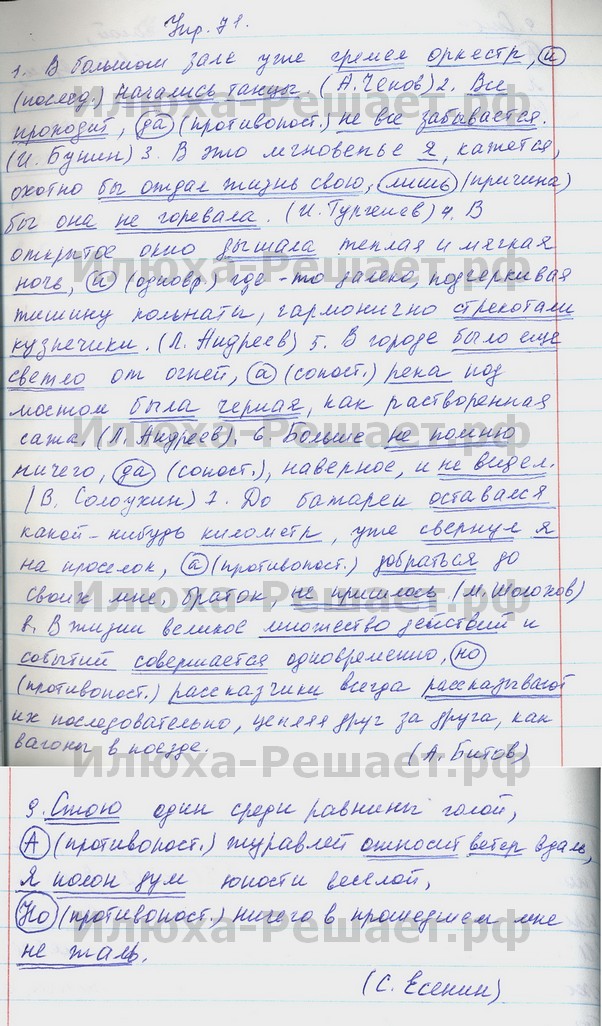 Упр. 71.
1. В большом зале уже гремел оркестр, и
(послед.) начались танцы. (А. Чехов) 2. Все
проходит, да (противопост.) не все забывается.
(И. Бунин) 3. В это мгновенье я, кажется,
охотно бы отдал жизнь свою, лишь (причина)
бы она не горевала. (И. Тургенев) 4. В
открытое окно дышала теплая и мягкая
ночь, и (одновр.) где-то далеко, подчеркивая
тишину комнаты, гармонично стрекотали
кузнечики. (Л. Андреев) 5. В городе было еще
светло от огней, а (сопост.) река под
мостом была черная, как растворенная
сажа. (Л. Андреев). 6. Больше не помню
ничего, да (сопост.), наверное, и не видел.
(В. Солоухин) 7. До батареи оставался
какой-нибудь километр, уже свернул я
на проселок, а (противопост.) добраться до
своих мне, браток, не пришлось. (М. Шолохов)
8. В жизни великое множество действий и
событий совершается одновременно, но
(противопост.) рассказчики всегда рассказывают
их последовательно, цепляя друг за друга, как
вагоны в поезде. (А. Битов)
9. Стою один среди равнины голой,
А (противопост.) журавлей относит ветер вдаль,
Я полон дум юности веселой,
Но (противопост.) ничего в прошедшем мне
не жаль.
(С. Есенин)
Илюха-Решает.рф
Илюха-Решает.рф
Илюха-Решает.рф
Илюха-Решает.рф
Илюха-Решает.рф
Илюха-Решает.рф
Илюха-Решает.рф